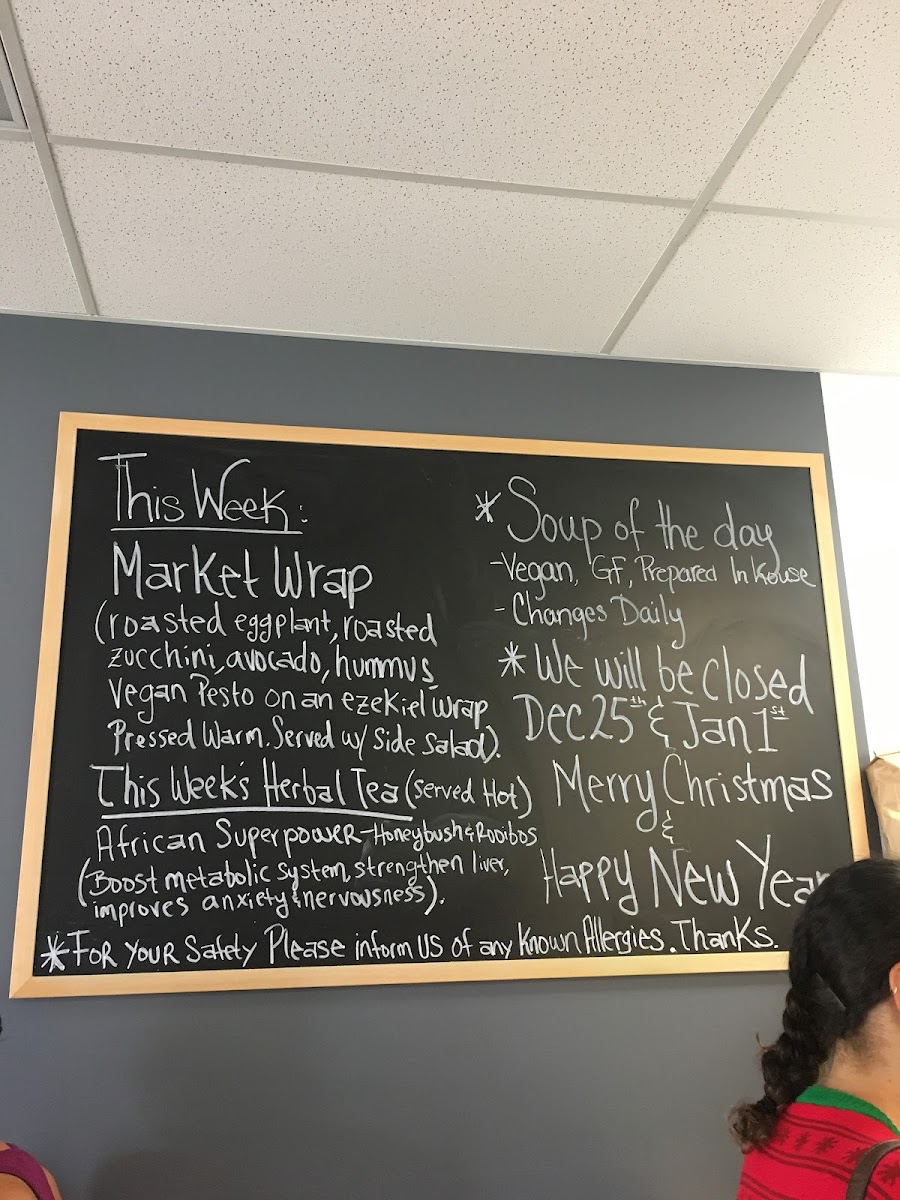 This Week:
Market Wrap
(roasted eggplant, roasted
zucchini, avocado, hummus,
Vegan Pesto on an ezekiel wrap.
Pressed Warm. Served w/ Side Salad).
This Week's Herbal Tea (Served Hot)
African Superpower-Honeybush & Rooibos
(Boost metabolic system, strengthen liver,
improves anxiety & nervousness).
* Soup of the day
-Vegan, GF, Prepared In House
- Changes Daily
* We will be closed
Dec 25th & Jan 1st
Merry Christmas
&
Happy New Year
* For Your Safety Please inform US of any Known Allergies. Thanks.